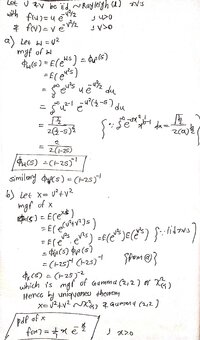 Let U & V be iid ~ Rayleigh(1) rvs
with f(u) = u e^{-u²/2} ; u>0
& f(v) = v e^{-v²/2} ; v>0
a) Let w = U²
mgf of w
Φ_w(s) = E(e^{ws}) = Φ_{U²}(s)
= E(e^{U²s})
= ∫₀^∞ e^{u²s} u e^{-u²/2} du
= ∫₀^∞ u^{2-1} e^{-u²(½-s)} du
= 2/(2(1-2s))
Φ_w(s) = (1-2s)^{-1}
similarly Φ_{V²}(s) = (1-2s)^{-1}
b) Let X = U²+V²
mgf of X
Φ_X(s) = E(e^{Xs})
= E(e^{(U²+V²)s})
= E(e^{U²s} · e^{V²s}) = E(e^{U²s}) E(e^{V²s}) {∵ iid rvs}
= Φ_{U²}(s) Φ_{V²}(s)
= (1-2s)^{-1} (1-2s)^{-1} {from a)}
Φ_X(s) = (1-2s)^{-2}
which is mgf of Gamma(2,2) or χ²₍₄₎
Hence by uniqueness theorem
X = U²+V² ~ χ²₍₄₎ Gamma(2,2)
pdf of X
f(x) = ¼ x e^{-x/2} ; x>0